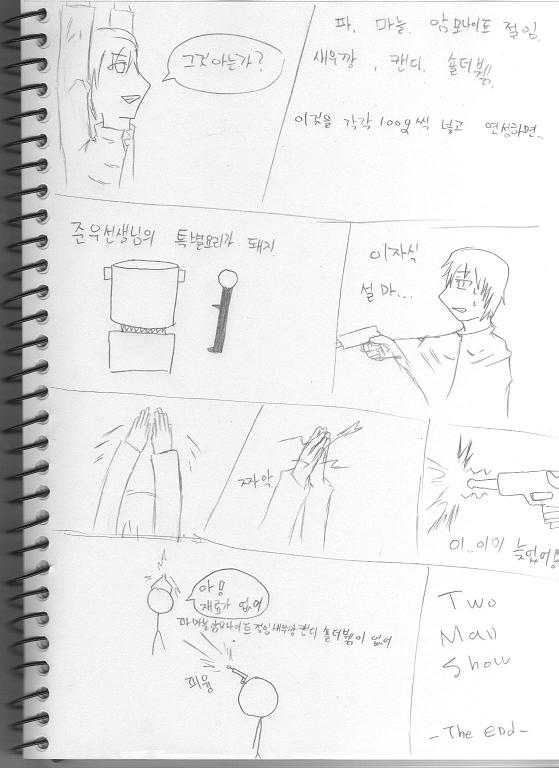 그것 아는가?
파, 마늘, 암모나이트 절임,
새우깡, 캔디, 숄더뷈,
이것을 각각 100g씩 넣고 연성하면..
준우선생님의 특별요리가 돼지
이자식
설마...
짜악
이..이미 늦었어!
아!
재료가 없어
파마늘암모나이트절임새우깡캔디 숄더뷈이 없어
피융
Two
Man
Show
-The end-